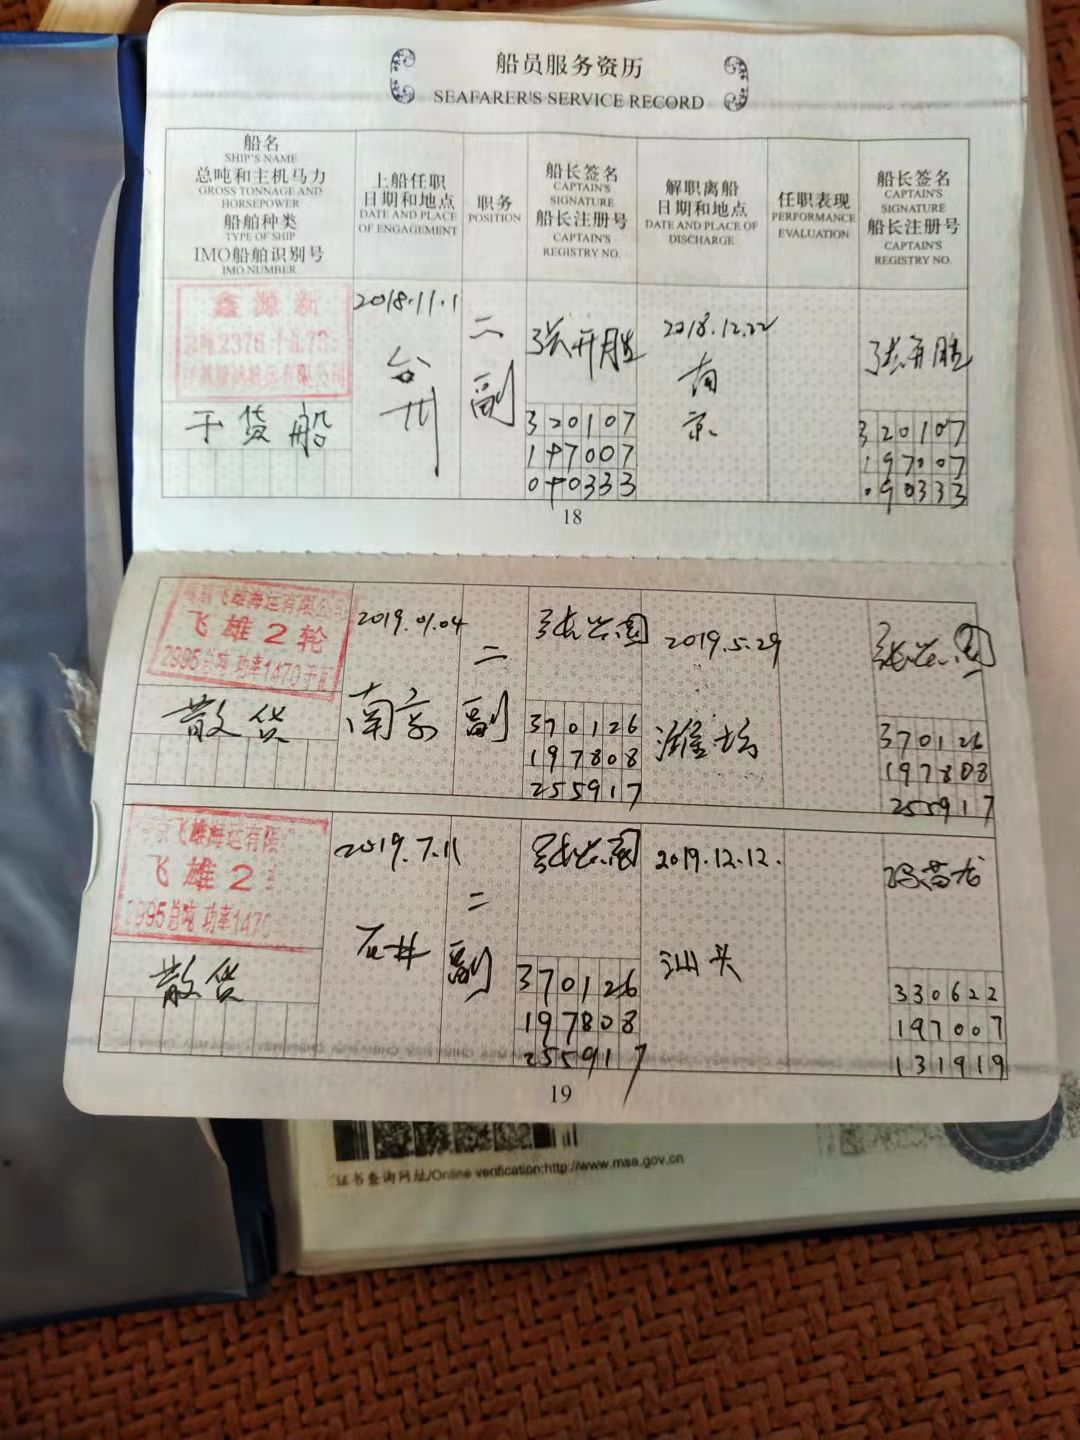 船员服务资历
SEAFARER'S SERVICE RECORD
船名
SHIP'S NAME
总吨和主机马力
GROSS TONNAGE AND
HORSEPOWER
船舶种类
TYPE OF SHIP
IMO船舶识别号
IMO NUMBER
上船任职
日期和地点
DATE AND PLACE
OF ENGAGEMENT
职务
POSITION
船长签名
CAPTAIN'S
SIGNATURE
船长注册号
CAPTAIN'S
REGISTRY NO.
解职离船
日期和地点
DATE AND PLACE OF
DISCHARGE
任职表现
PERFORMANCE
EVALUATION
船长签名
CAPTAIN'S
SIGNATURE
船长注册号
CAPTAIN'S
REGISTRY NO.
鑫源新
2376
干货船
2018.11.1
台州
二副
张开胜
320107
197007
090333
2018.12.22
南京
张开胜
320107
197007
090333
18
京飞雄海运有限公司
飞雄2轮
2995总吨 功率1470千瓦
散货
2019.01.04
南京
二副
370126
197808
255917
2019.5.29
潍坊
370126
197808
255917
京飞雄海运有限
飞雄2
2995总吨 功率1470
散货
2019.7.11
石井
二副
370126
197808
255917
2019.12.12.
汕头
330622
197007
131919
19
证书查询网址/Online verification:http://www.msa.gov.cn